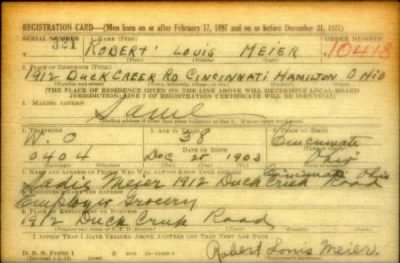 REGISTRATION CARD—(Men born on or after February 17, 1897 and on or before December 31, 1921)
SERIAL NUMBER 1. NAME (Print) ORDER NUMBER
321 ROBERT LOUIS MEIER 10413
2. PLACE OF RESIDENCE (Print)
1912 DUCK CREEK RD CINCINNATI HAMILTON OHIO
[THE PLACE OF RESIDENCE GIVEN ON THE LINE ABOVE WILL DETERMINE LOCAL BOARD
JURISDICTION; LINE 2 OF REGISTRATION CERTIFICATE WILL BE IDENTICAL]
3. MAILING ADDRESS
Same
4. TELEPHONE 5. AGE IN YEARS 6. PLACE OF BIRTH
W. O 38 Cincinnati
DATE OF BIRTH
0404 DEC 25 1903 Ohio
7. NAME AND ADDRESS OF PERSON WHO WILL ALWAYS KNOW YOUR ADDRESS
Cincinnati Ohio
Sadie Meier 1912 Duck Creek Road
8. EMPLOYER'S NAME AND ADDRESS
Employer Grocery
9. PLACE OF EMPLOYMENT OR BUSINESS
1912 Duck Creek Road
I AFFIRM THAT I HAVE VERIFIED ABOVE ANSWERS AND THAT THEY ARE TRUE.
D. S. S. Form 1
Robert Louis Meier